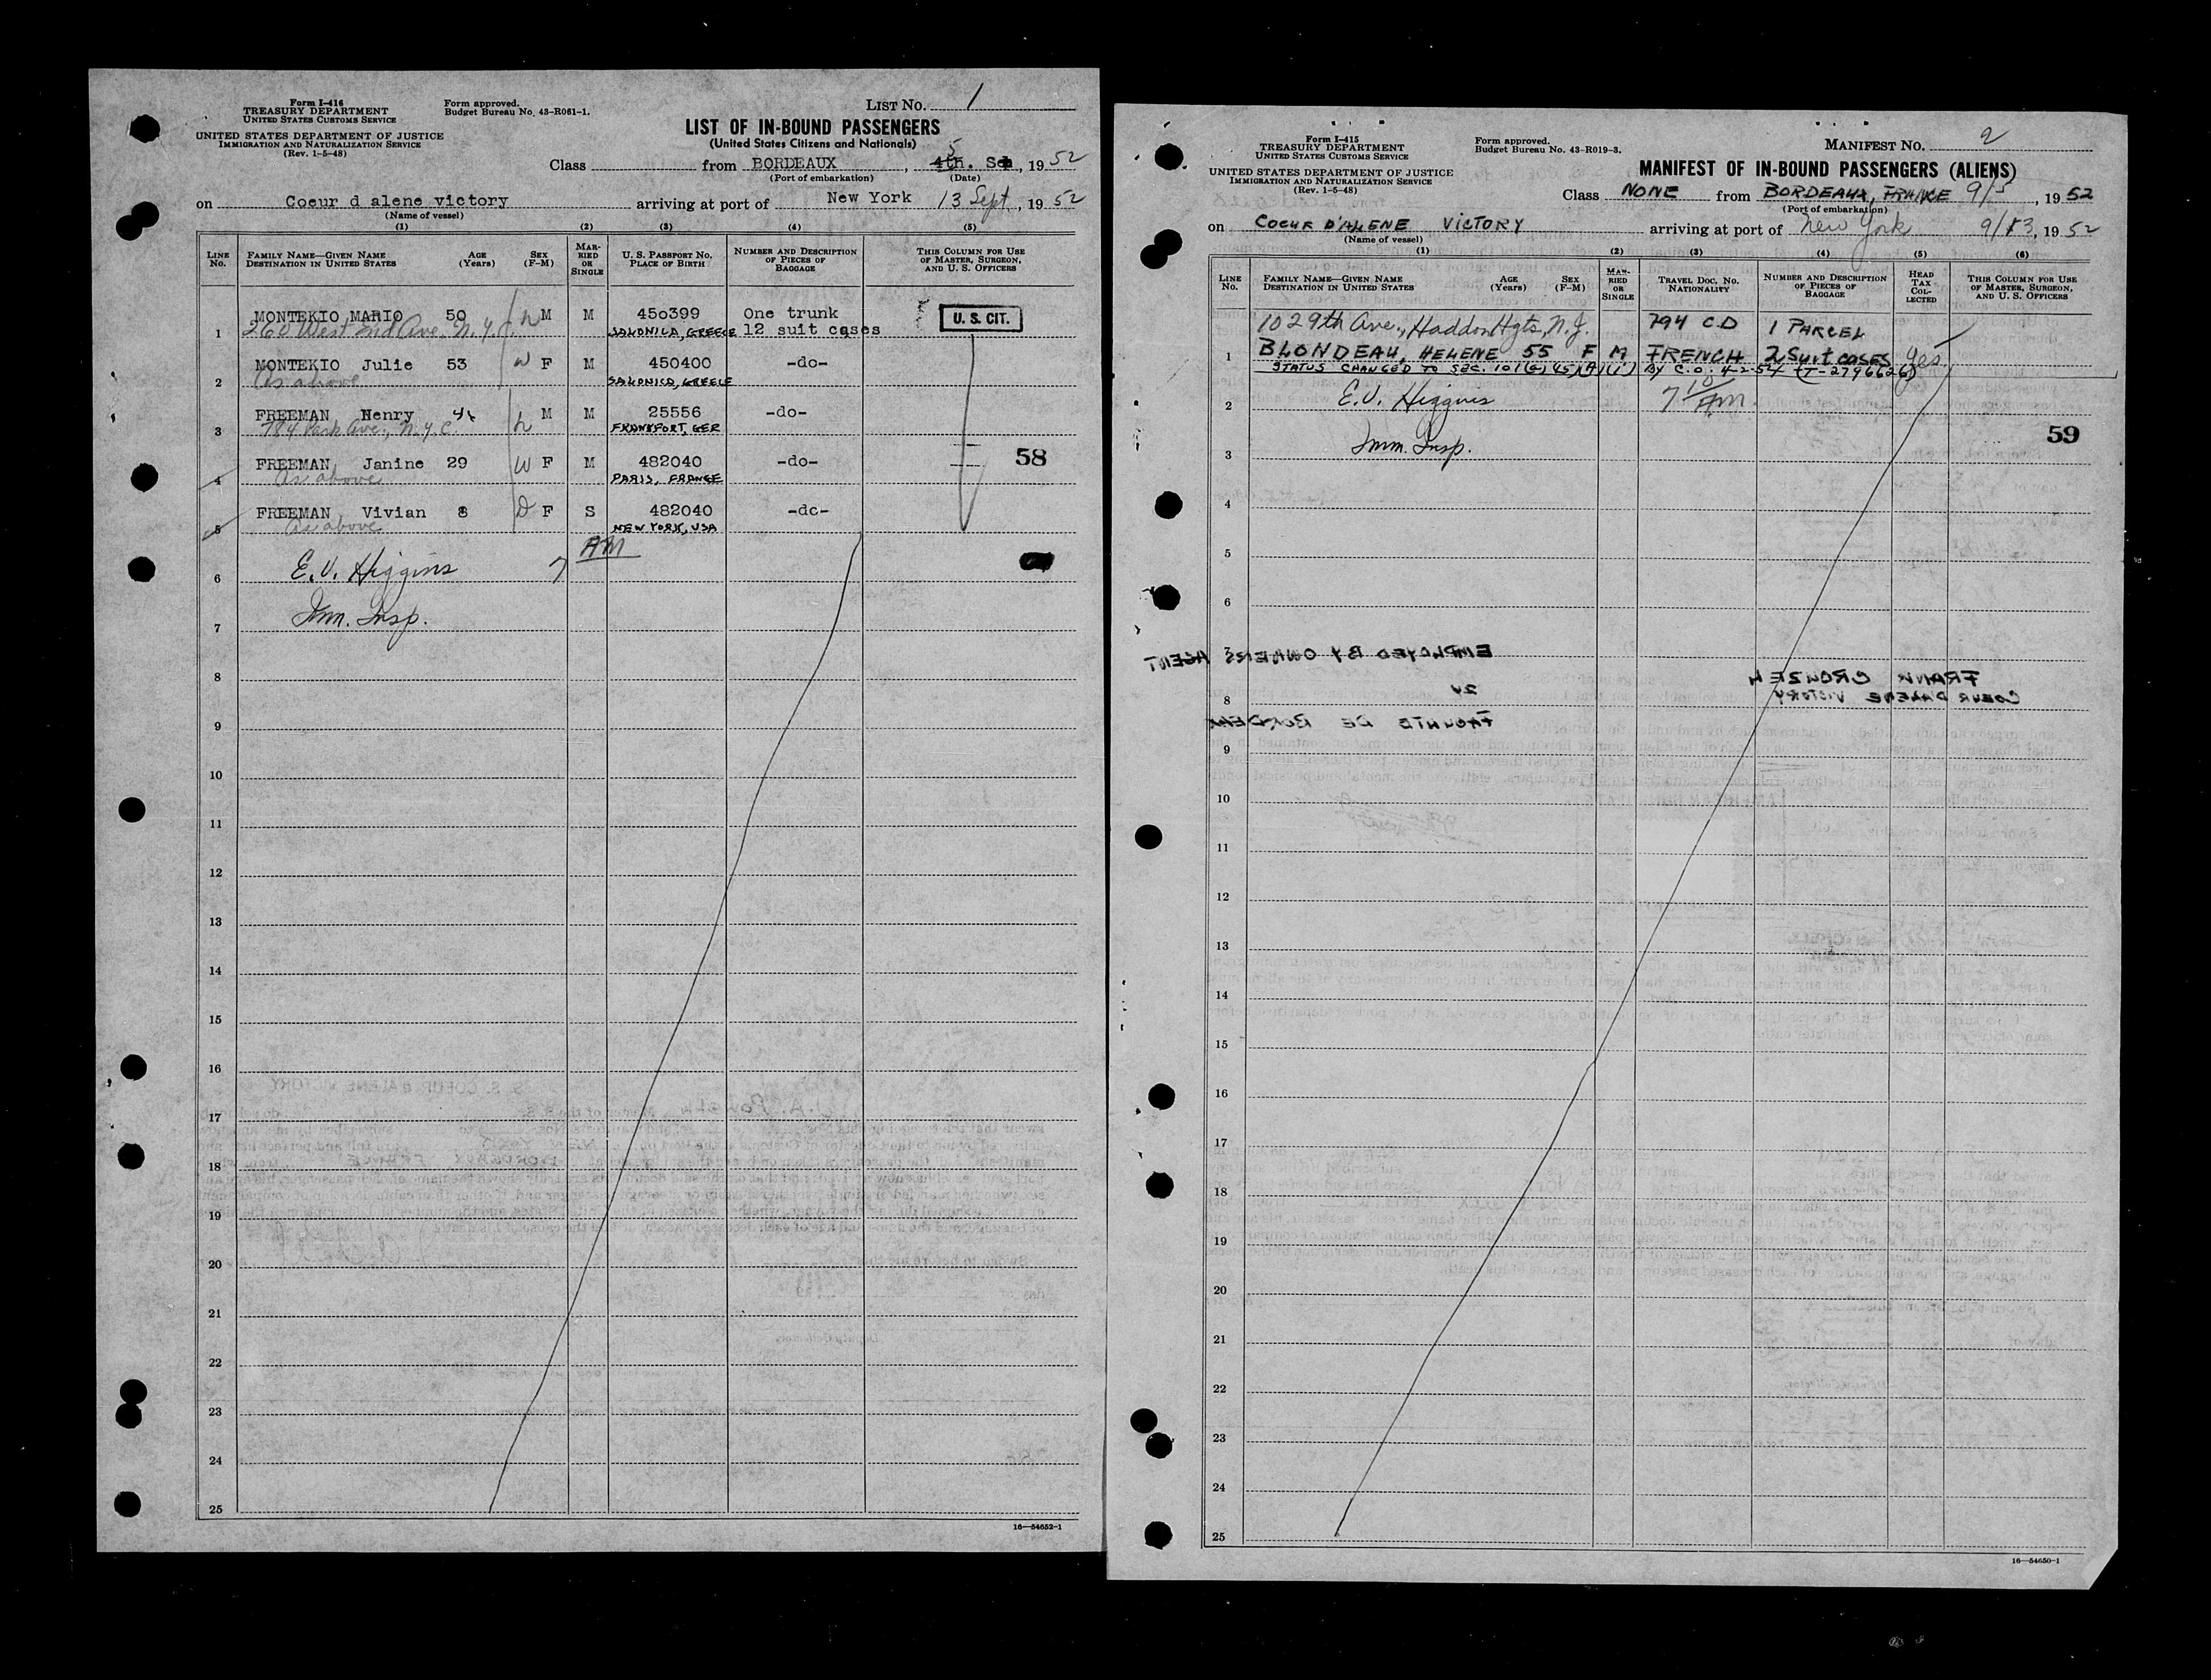 Form I-416
TREASURY DEPARTMENT
UNITED STATES CUSTOMS SERVICE
UNITED STATES DEPARTMENT OF JUSTICE
IMMIGRATION AND NATURALIZATION SERVICE
(Rev. 1-5-48)
Form approved.
Budget Bureau No. 43-R061-1.
LIST NO. 1
LIST OF IN-BOUND PASSENGERS
(United States Citizens and Nationals)
Class from BORDEAUX, 5 4th. Sep, 1952
(Port of embarkation) (Date)
on Coeur d alene victory arriving at port of New York 13 Sept., 1952
(Name of vessel)
(1) (2) (3) (4) (5)
LINE NO.
FAMILY NAME—GIVEN NAME
DESTINATION IN UNITED STATES
AGE (Years)
SEX (F-M)
MARRIED OR SINGLE
U. S. PASSPORT NO.
PLACE OF BIRTH
NUMBER AND DESCRIPTION OF PIECES OF BAGGAGE
THIS COLUMN FOR USE OF MASTER, SURGEON, AND U. S. OFFICERS
1 MONTEKIO MARIO 50 h M M 450399 One trunk U. S. CIT.
260 West End Ave. N.Y.C. SALONICA, GREECE 12 suit cases
2 MONTEKIO Julie 53 W F M 450400 -do-
As above SALONICA, GREECE
3 FREEMAN Henry h M M 25556 -do-
784 Park Ave., N.Y.C. FRANKFORT, GER
4 FREEMAN Janine 29 W F M 482040 -do- 58
As above PARIS, FRANCE
5 FREEMAN Vivian 8 D F S 482040 -do-
As above NEW YORK, USA
6 E.V. Higgins 7 AM
7 Imm. Insp.
8
9
10
11
12
13
14
15
16
17
18
19
20
21
22
23
24
25
16—54652-1
Form I-415
TREASURY DEPARTMENT
UNITED STATES CUSTOMS SERVICE
UNITED STATES DEPARTMENT OF JUSTICE
IMMIGRATION AND NATURALIZATION SERVICE
(Rev. 1-5-48)
Form approved.
Budget Bureau No. 43-R019-3.
MANIFEST NO. 2
MANIFEST OF IN-BOUND PASSENGERS (ALIENS)
Class NONE from BORDEAUX, FRANCE 9/5, 1952
(Port of embarkation)
on COEUR D'ALENE VICTORY arriving at port of New York 9/13, 1952
(Name of vessel)
(1) (2) (3) (4) (5) (6)
LINE NO.
FAMILY NAME—GIVEN NAME
DESTINATION IN UNITED STATES
AGE (Years)
SEX (F-M)
MARRIED OR SINGLE
TRAVEL DOC. NO.
NATIONALITY
NUMBER AND DESCRIPTION OF PIECES OF BAGGAGE
HEAD TAX COLLECTED
THIS COLUMN FOR USE OF MASTER, SURGEON, AND U. S. OFFICERS
102 9th Ave., Haddon Hgts, N.J. 794 C.D 1 PARCEL
1 BLONDEAU, HELENE 55 F M FRENCH 2 Suit cases Yes
STATUS CHANGED TO SEC. 101(a)(15)(A)(i) BY C.O. 4-2-54 (T-2796626)
2 E.V. Higgins 7 10/AM
59
3 Imm. Insp.
4
5
6
7 EMPLOYED BY OWNERS AGENT
FRANK CROUZEH
8 COEUR D'ALENE VICTORY
DE BORDEAUX
9
10
11
12
13
14
15
16
17
18
19
20
21
22
23
24
25
16—54650-1